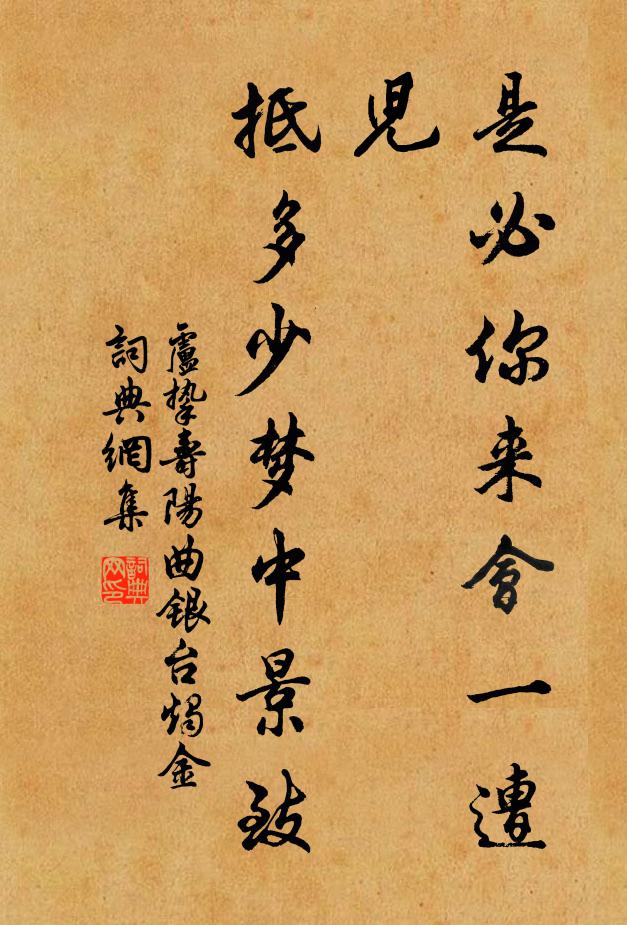 是必你来會一遭
児
抵多少梦中景致
盧挚壽陽曲銀台燭金
詞典網集
詞典网印